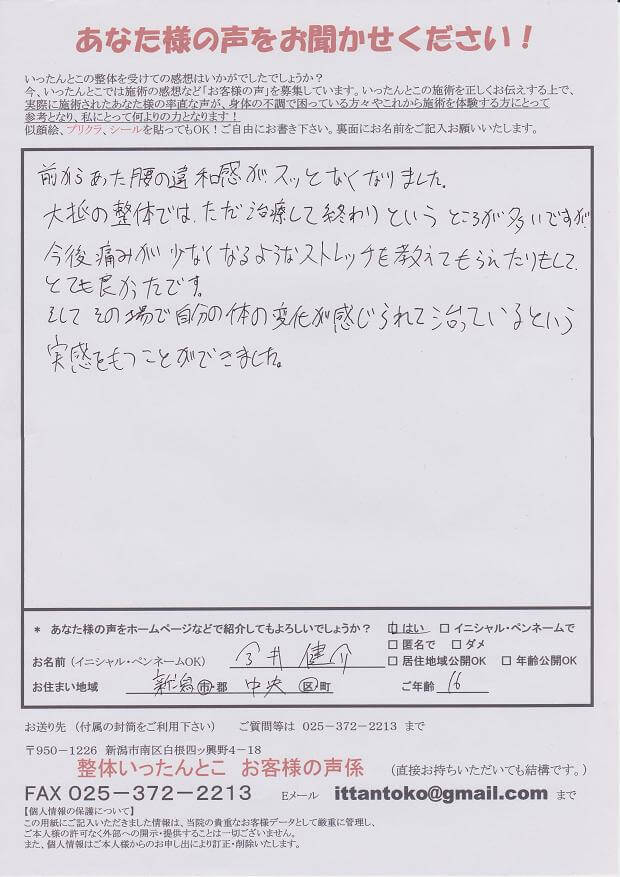 あなた様の声をお聞かせください!
いったんとこの整体を受けての感想はいかがでしたでしょうか?
今、いったんとこでは施術の感想など「お客様の声」を募集しています。いったんとこの施術を正しくお伝えする上で、
実際に施術されたあなた様の率直な声が、身体の不調で困っている方々やこれから施術を体験する方にとって
参考となり、私にとって何よりの力となります!
似顔絵、プリクラ、シールを貼ってもOK!ご自由にお書き下さい。裏面にお名前をご記入お願いいたします。
前からあった腰の違和感がスッとなくなりました。
大抵の整体では、ただ治療して終わりというところが多いですが
今後痛みが少なくなるようなストレッチを教えてもらえたりもして、
とても良かったです。
そしてその場で自分の体の変化が感じられて治っているという
実感をもつことができました。
* あなた様の声をホームページなどで紹介してもよろしいでしょうか? □はい □イニシャル・ペンネームで
□匿名で □ダメ
お名前(イニシャル・ペンネームOK) 今井 健介 □居住地域公開OK □年齢公開OK
お住まい地域 新潟 市・郡 中央 区・町 ご年齢 16
お送り先 (付属の封筒をご利用下さい) ご質問等は 025-372-2213 まで
〒950-1226 新潟市南区白根四ッ興野4-18
整体いったんとこ お客様の声係 (直接お持ちいただいても結構です。)
FAX 025-372-2213 Eメール ittantoko@gmail.com まで
【個人情報の保護について】
この用紙にご記入いただきました情報は、当院の貴重なお客様データとして厳重に管理し、
ご本人様の許可なく外部への開示・提供することは一切ございません。
また、個人情報はご本人様からのお申し出により訂正・削除いたします。